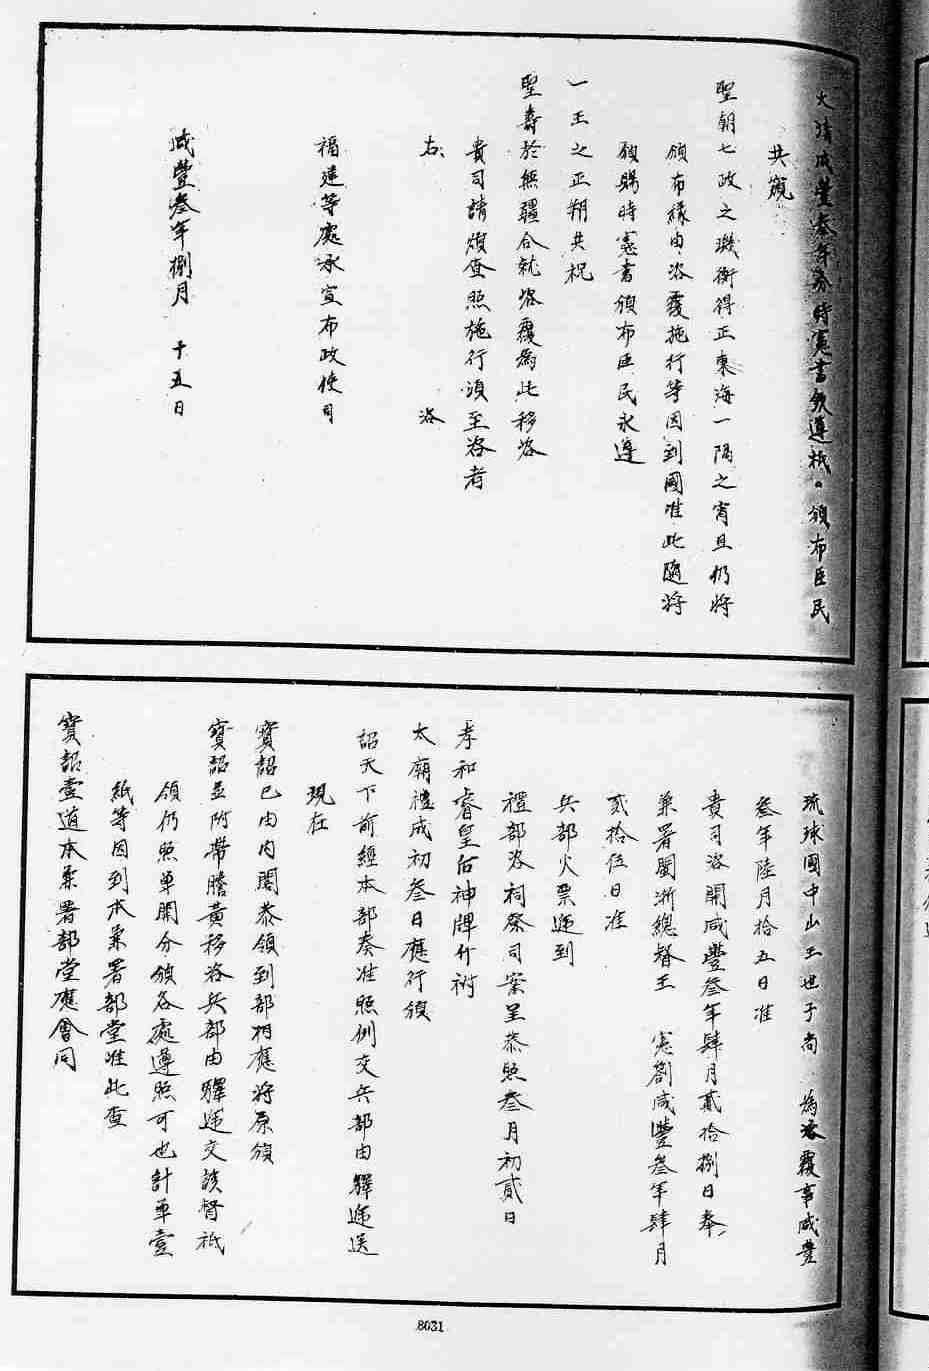 大清咸豐叁年癸時憲書欽遵祇○頒布臣民
共窺
聖朝七政之璣衡得正東海一隅之宵旦仍將
頒布緣由咨覆施行等因到國准此隨將
頒賜時憲書頒布臣民永遵
一王之正朔共祝
聖壽於無疆合就咨覆為此移咨
貴司請煩查照施行須至咨者
右 咨
福建等處承宣布政使司
咸豐叁年捌月 十五日
琉球國中山王世子尚 為咨覆事咸豐
叁年陸月拾五日准
貴司咨開咸豐叁年肆月貳拾捌日奉
兼署閩浙總督王 憲劄咸豐叁年肆月
貳拾伍日准
兵部火票遞到
禮部咨祠祭司案呈恭照叁月初貳日
孝和睿皇后神牌升祔
太廟禮成初叁日應行頒
詔天下前經本部奏准照例交兵部由驛遞送
現在
寶詔已由內閣恭領到部相應將原頒
寶詔並附帶謄黃移咨兵部由驛遞交該督祇
領仍照單開分頒各處遵照可也計單壹
紙等因到本兼署部堂准此查
寶詔壹道本兼署部堂應會同
8031